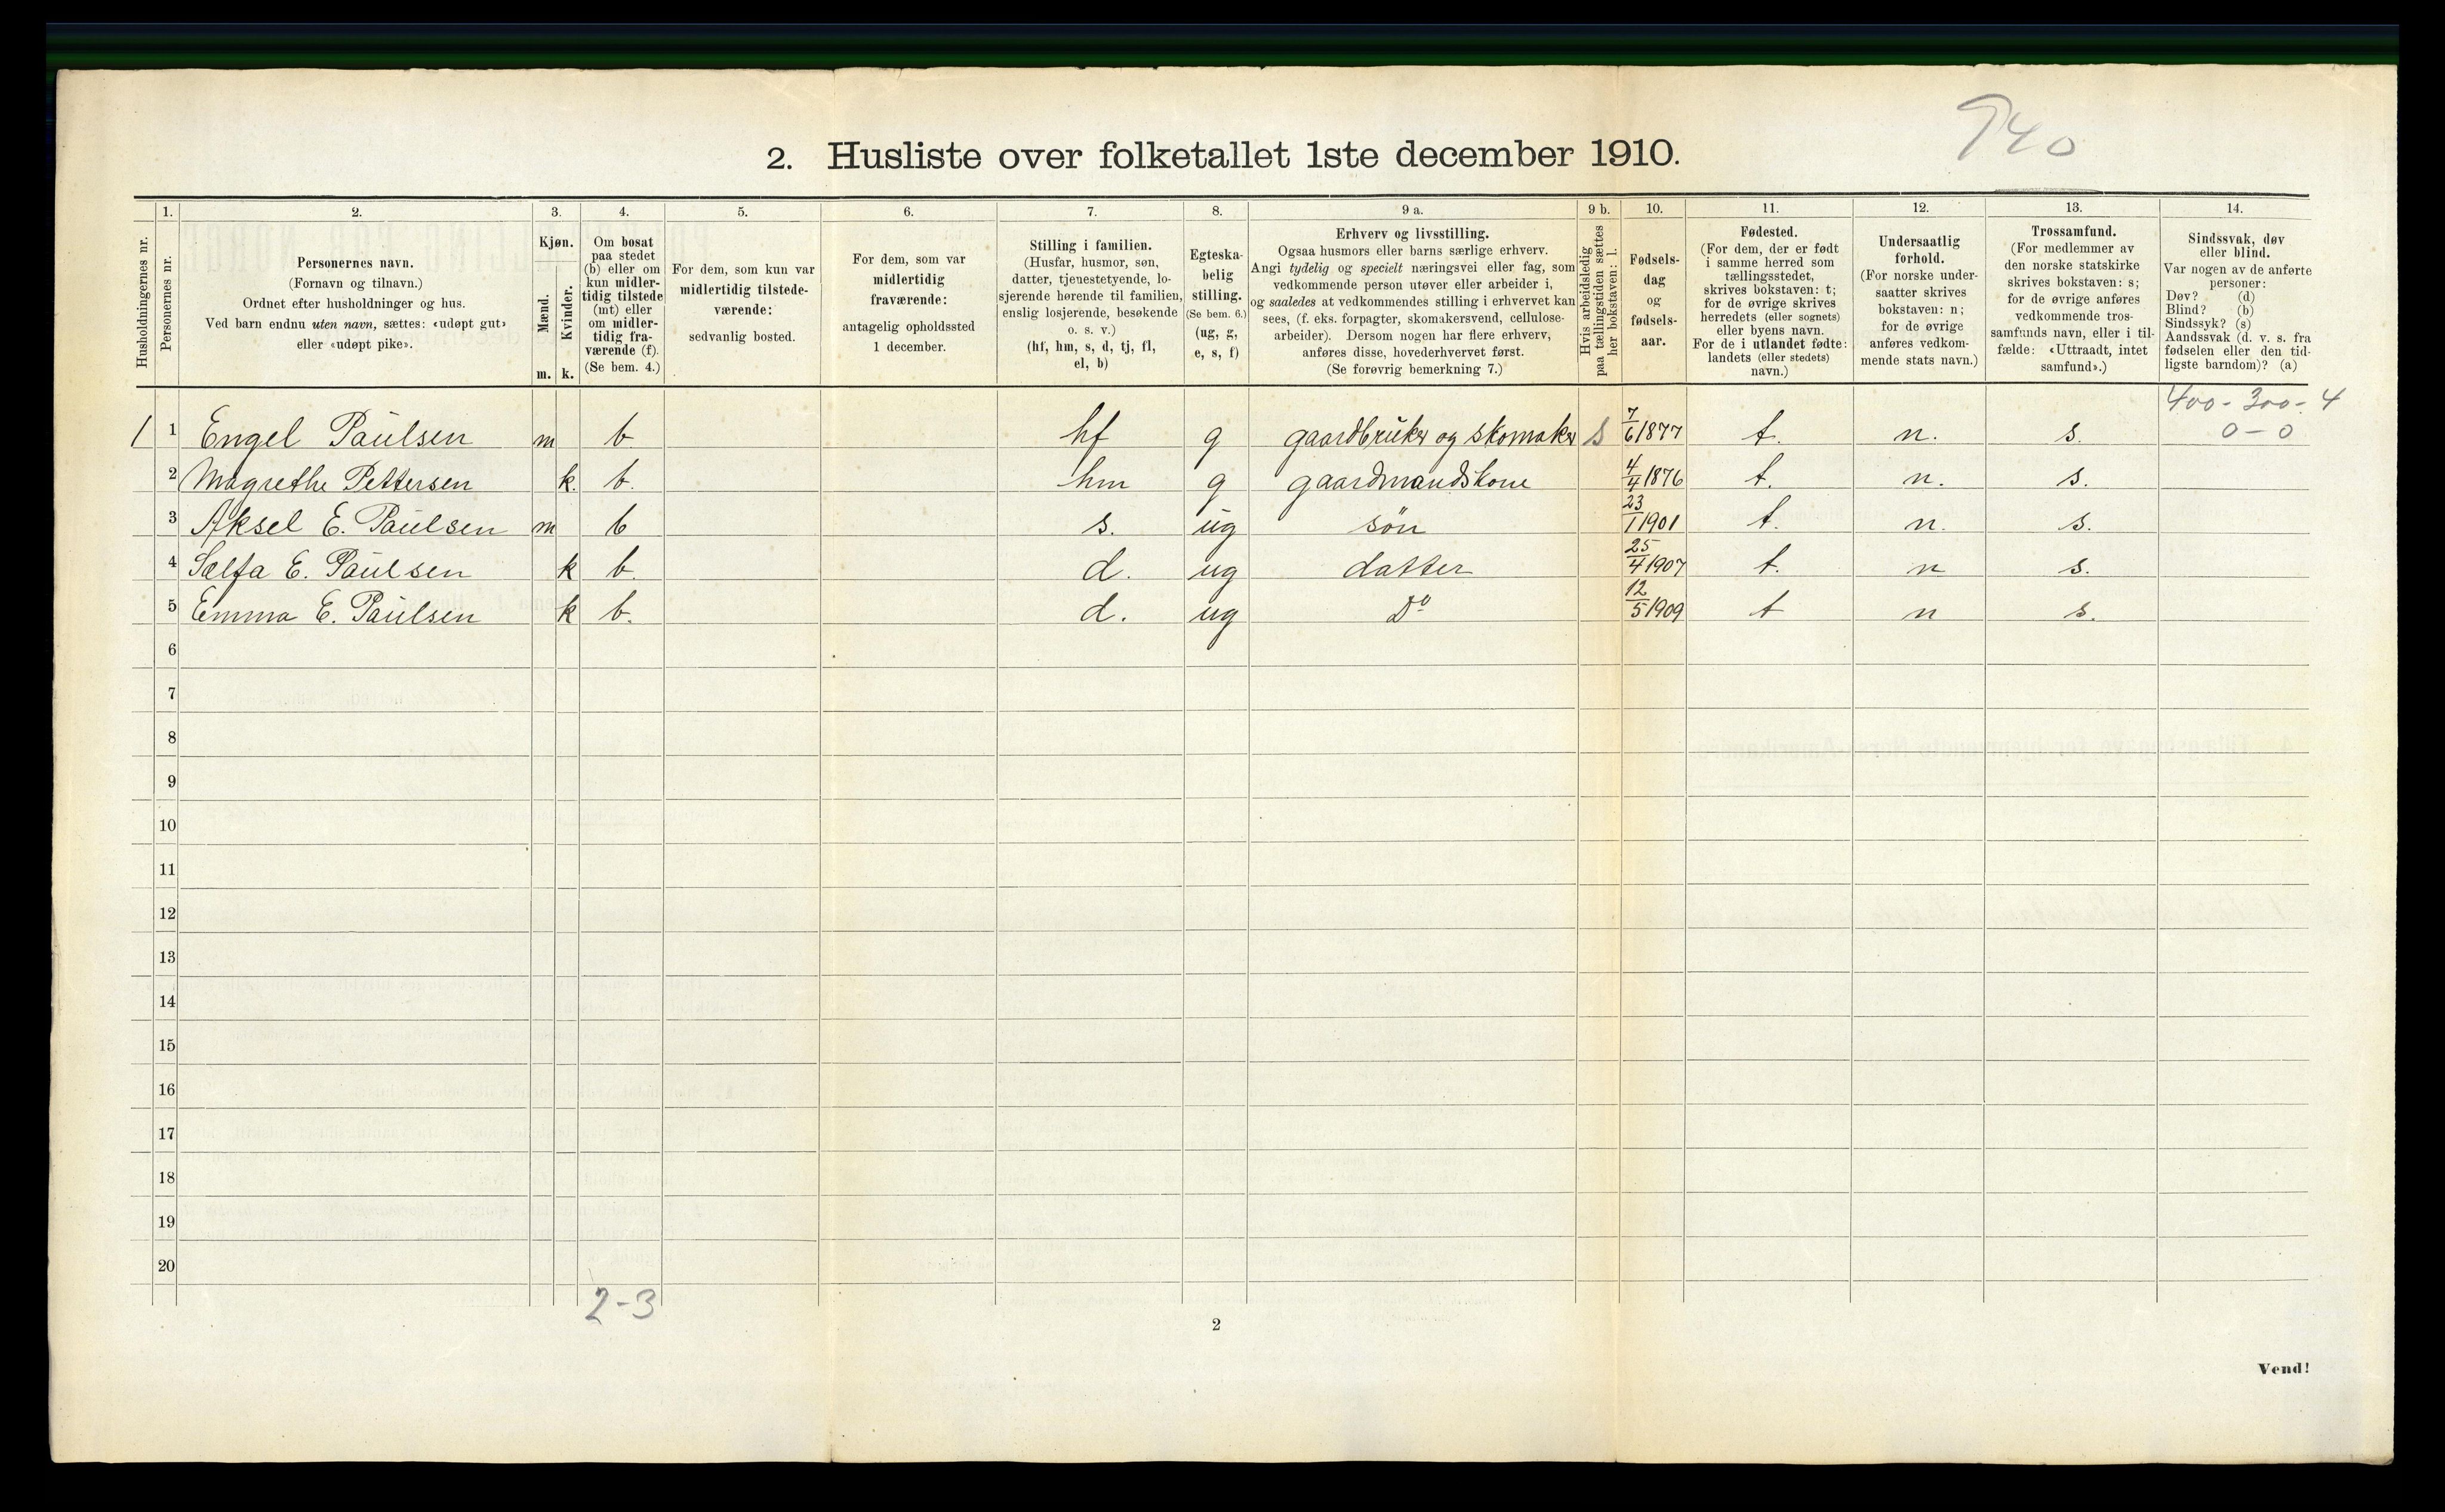 740
2. Husliste over folketallet 1ste december 1910.
1. 2. 3. 4. 5. 6. 7. 8. 9 a. 9 b. 10. 11. 12. 13. 14.
Husholdningernes nr.
Personernes nr.
Personernes navn.
(Fornavn og tilnavn.)
Ordnet efter husholdninger og hus.
Ved barn endnu uten navn, sættes: «udøpt gut»
eller «udøpt pike».
Kjøn.
Mænd.
Kvinder.
m. k.
Om bosat
paa stedet
(b) eller om
kun midler-
tidig tilstede
(mt) eller
om midler-
tidig fra-
værende (f).
(Se bem. 4.)
For dem, som kun var
midlertidig tilstede-
værende:
sedvanlig bosted.
For dem, som var
midlertidig
fraværende:
antagelig opholdssted
1 december.
Stilling i familien.
(Husfar, husmor, søn,
datter, tjenestetyende, lo-
sjerende hørende til familien,
enslig losjerende, besøkende
o. s. v.)
(hf, hm, s, d, tj, fl,
el, b)
Egteska-
belig
stilling.
(Se bem. 6.)
(ug, g,
e, s, f)
Erhverv og livsstilling.
Ogsaa husmors eller barns særlige erhverv.
Angi tydelig og specielt næringsvei eller fag, som
vedkommende person utøver eller arbeider i,
og saaledes at vedkommendes stilling i erhvervet kan
sees, (f. eks. forpagter, skomakersvend, cellulose-
arbeider). Dersom nogen har flere erhverv,
anføres disse, hovederhvervet først.
(Se forøvrig bemerkning 7.)
Hvis arbeidsledig
paa tællingstiden sættes
her bokstaven: l.
Fødsels-
dag
og
fødsels-
aar.
Fødested.
(For dem, der er født
i samme herred som
tællingsstedet,
skrives bokstaven: t;
for de øvrige skrives
herredets (eller sognets)
eller byens navn.
For de i utlandet fødte:
landets (eller stedets)
navn.)
Undersaatlig
forhold.
(For norske under-
saatter skrives
bokstaven: n;
for de øvrige
anføres vedkom-
mende stats navn.)
Trossamfund.
(For medlemmer av
den norske statskirke
skrives bokstaven: s;
for de øvrige anføres
vedkommende tros-
samfunds navn, eller i til-
fælde: «Uttraadt, intet
samfund».)
Sindssvak, døv
eller blind.
Var nogen av de anførte
personer:
Døv? (d)
Blind? (b)
Sindssyk? (s)
Aandssvak (d. v. s. fra
fødselen eller den tid-
ligste barndom)? (a)
400 - 300 - 4
1 1 Engel Paulsen m b hf g gaardbruker og skomaker s 7/6 1877 t. n. s. 0 - 0
2 Magrethe Pettersen k. b. hm g gaardmandskone 4/4 1876 t. n. s.
3 Aksel E. Paulsen m b s. ug søn 23/1 1901 t. n. s.
4 Salfa E. Paulsen k b. d. ug datter 25/4 1907 t. n s.
5 Emma E. Paulsen k b. d. ug Do 12/5 1909 t n s.
6
7
8
9
10
11
12
13
14
15
16
17
18
19
20
2-3
2
Vend!